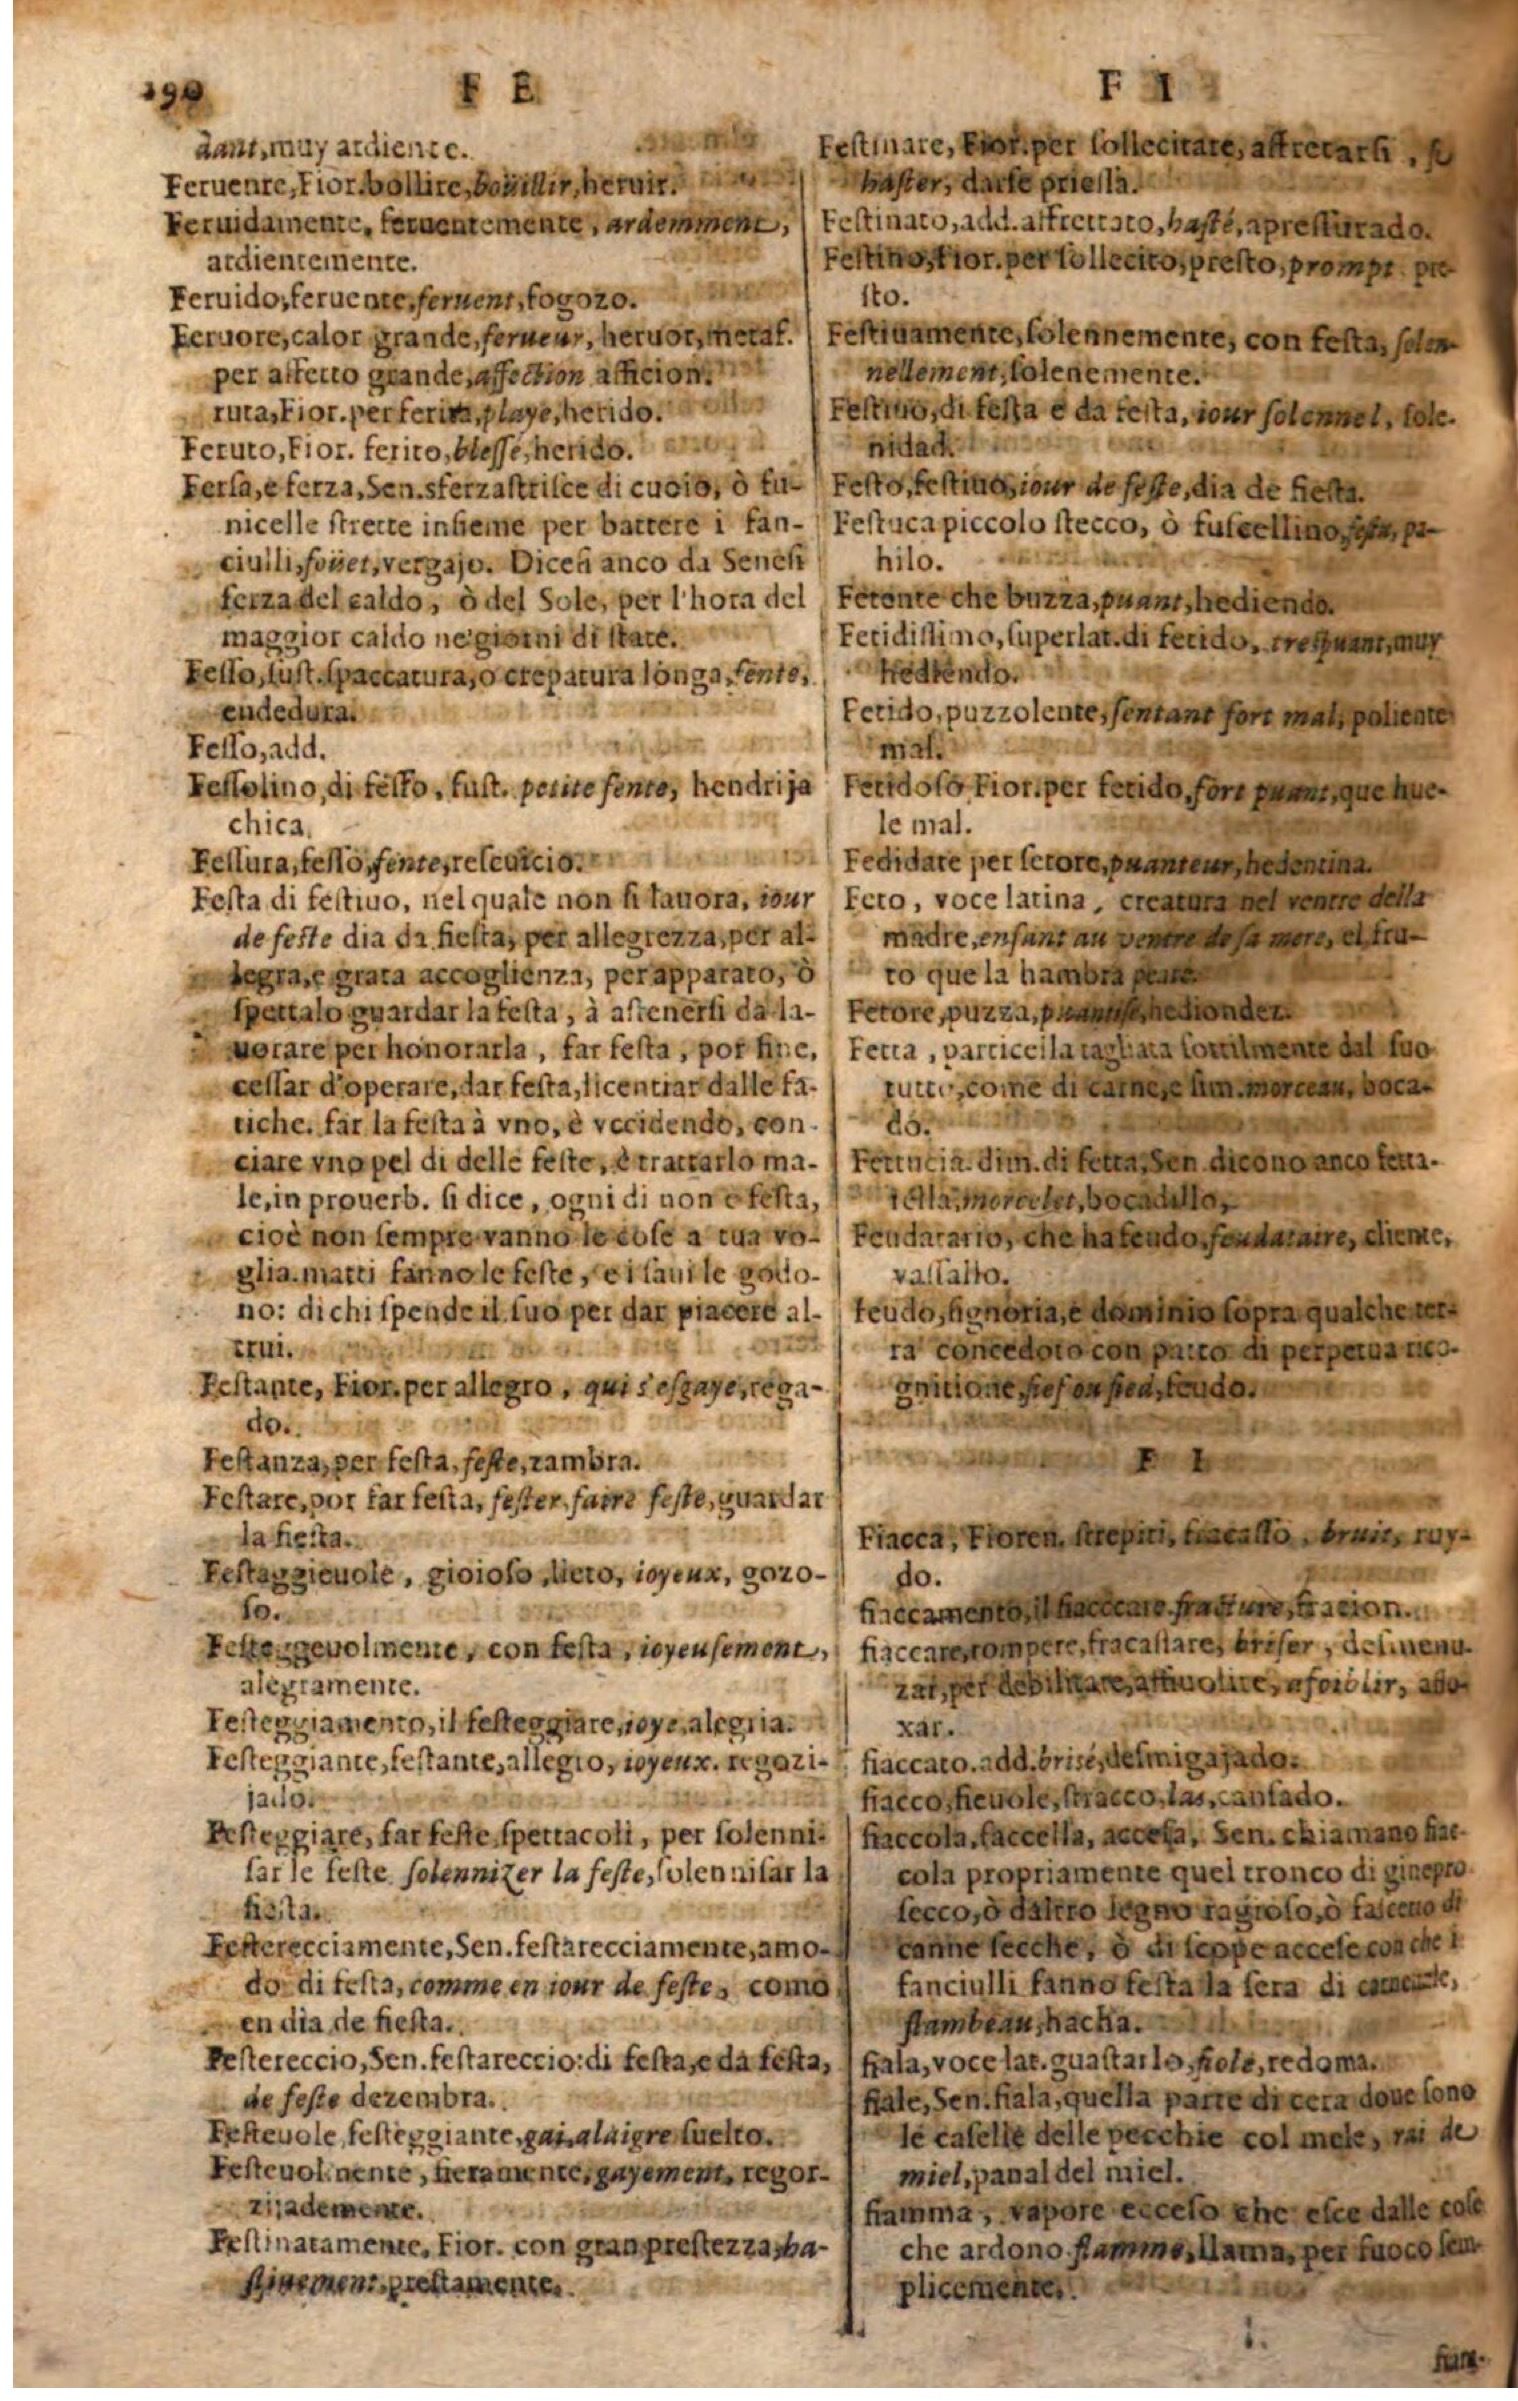 190 F E F I
dant, muy ardiente.
Feruente, Fior. bollire, boüillir, heruir.
Feruidamente, feruentemente, ardemment,
ardientemente.
Feruido, feruente, feruent, fogozo.
Feruore, calor grande, ferueur, heruor, metaf.
per affetto grande, affection afficion.
ruta, Fior. per ferita, playe, herido.
Feruto, Fior. ferito, blessé, herido.
Fersa, e ferza, Sen. sferza strisce di cuoio, ò fu-
nicelle strette insieme per battere i fan-
ciulli, foüet, vergajo. Dicesi anco da Senesi
ferza del caldo, ò del Sole, per l'hora del
maggior caldo ne' giorni di state.
Fesso, sust. spaccatura, o crepatura longa, fente,
endedura.
Fesso, add.
Fessolino, di fesso, sust. petite fente, hendrija
chica.
Fessura, fesso, fente, reseuicio.
Festa di festiuo, nel quale non si lauora, iour
de feste dia da fiesta, per allegrezza, per al-
legra, e grata accoglienza, per apparato, ò
spettalo guardar la festa, à astenersi da la-
uorare per honorarla, far festa, por fine,
cessar d'operare, dar festa, licentiar dalle fa-
tiche. far la festa à vno, è vccidendo, con-
ciare vno pel di delle feste, è trattarlo ma-
le, in prouerb. si dice, ogni di non e festa,
cioè non sempre vanno le cose a tua vo-
glia. matti fanno le feste, e i saui le godo-
no: di chi spende il suo per dar piacere al-
trui.
Festante, Fior. per allegro, qui s'esgaye, rega-
do.
Festanza, per festa, feste, zambra.
Festare, por far festa, fester, faire feste, guardar
la fiesta.
Festaggieuole, gioioso, lieto, ioyeux, gozo-
so.
Festeggeuolmente, con festa, ioyeusement,
alegramente.
Festeggiamento, il festeggiare, ioye, alegria.
Festeggiante, festante, allegro, ioyeux. regozi-
jado.
Festeggiare, far feste, spettacoli, per solenni-
sar le feste solennizer la feste, solennisar la
fiesta.
Festerecciamente, Sen. festarecciamente, amo-
do di festa, comme en iour de feste, como
en dia de fiesta.
Festereccio, Sen. festareccio: di festa, e da festa,
de feste dezembra.
Festeuole, festeggiante, gai, alaigre suelto.
Festeuolmente, fieramente, gayement, regor-
zijademente.
Festinatamente, Fior. con gran prestezza, ha-
stiuement, prestamente.
Festinare, Fior. per sollecitare, affretarsi, se
haster, darse priessa.
Festinato, add. affrettato, hasté, apressurado.
Festino, Fior. per sollecito, presto, prompt pre-
sto.
Festiuamente, solennemente, con festa, solen-
nellement, solenemente.
Festiuo, di festa e da festa, iour solennel, sole-
nidad.
Festo, festiuo, iour de feste, dia de fiesta.
Festuca piccolo stecco, ò fuscellino, pa-
hilo.
Fetente che buzza, puant, hediendo.
Fetidissimo, superlat. di fetido, trespuant, muy
hediendo.
Fetido, puzzolente, sentant fort mal, poliente
mal.
Fetidoso Fior. per fetido, fort puant, que hue-
le mal.
Fedidate per fetore, puanteur, hedentina.
Feto, voce latina, creatura nel ventre della
madre, enfant au ventre de sa mere, el fru-
to que la hambra
Fetore, puzza, puantise, hediondez.
Fetta, particella tagliata sottilmente dal suo
tutto, come di carne, e sim. morceau, boca-
do.
Fettucia. dim. di fetta, Sen. dicono anco fetta-
rella, morcelet, bocadillo,
Feudatario, che ha feudo, feudataire, cliente,
vassallo.
feudo, signoria, e dominio sopra qualche ter-
ra concedoto con patto di perpetua rico-
gnitione, fief ou fied, feudo.
F I
Fiacca, Fioren. strepiti, fracasso, bruit, ruy-
do.
fiaccamento, il fiaccare. fracture, fracion.
fiaccare, rompere, fracassare, briser, desmenu-
zar, per debilitare, affiuolire, afoiblir, aflo-
xar.
fiaccato. add. brisé, desmigajado.
fiacco, fieuole, stracco, las, cansado.
fiaccola, faccella, accesa, Sen. chiamano fiac-
cola propriamente quel tronco di ginepro
secco, ò daltro legno ragioso, ò fascetto di
canne secche, ò di scope accese con che i
fanciulli fanno festa la sera di
flambeau, hacha.
fiala, voce lat. guastarlo, fiole, redoma.
fiale, Sen. fiala, quella parte di cera doue sono
le caselle delle pecchie col mele, rai de
miel, panal del miel.
fiamma, vapore ecceso che esce dalle cose
che ardono flamme, llama, per fuoco sem-
plicemente.